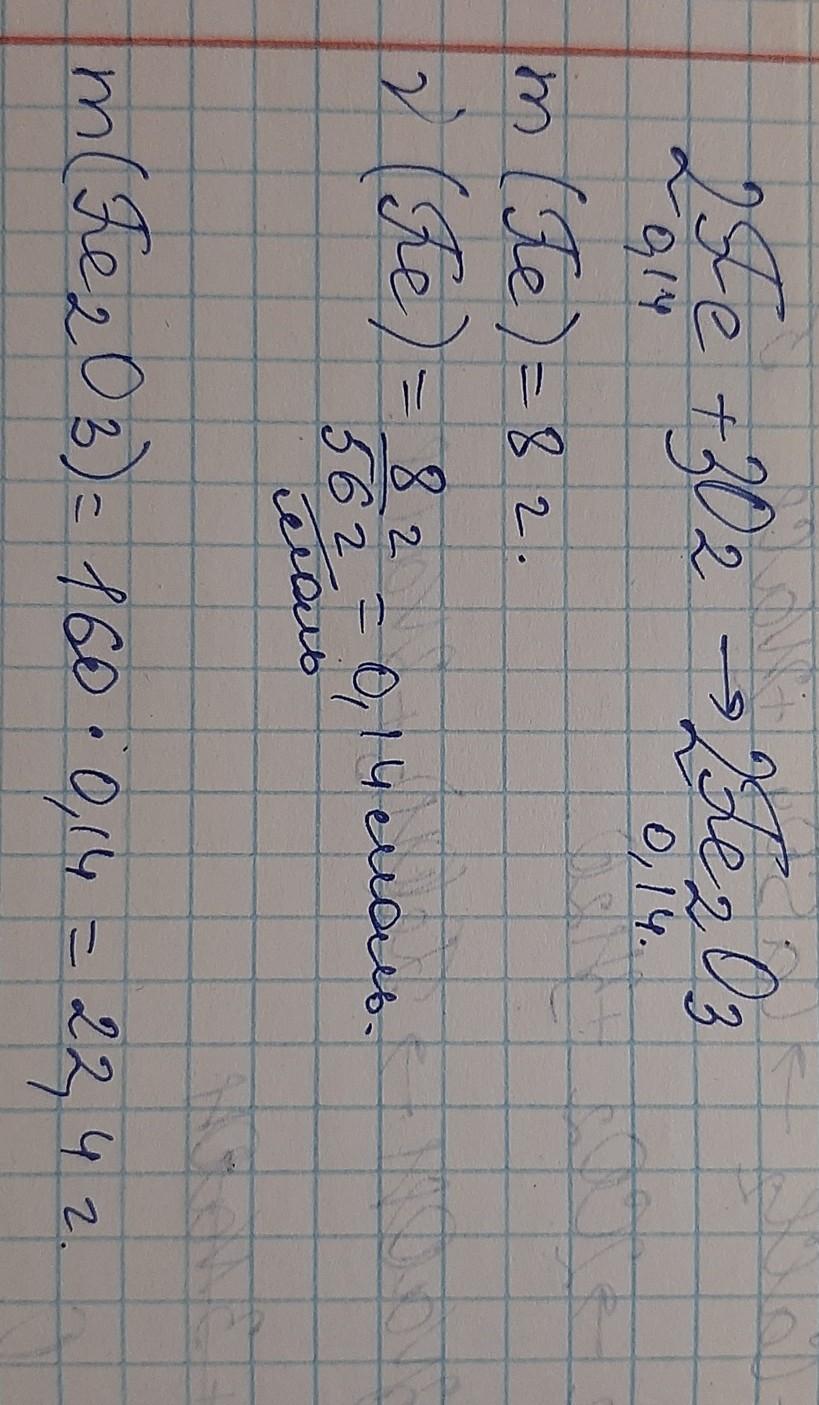 2Fe + 3O2 → 2Fe2O3
0,14 0,14.
m (Fe) = 8 г.
ν (Fe) = 8 г / 56 г/моль = 0,14 моль.
m(Fe2O3) = 160 · 0,14 = 22,4 г.